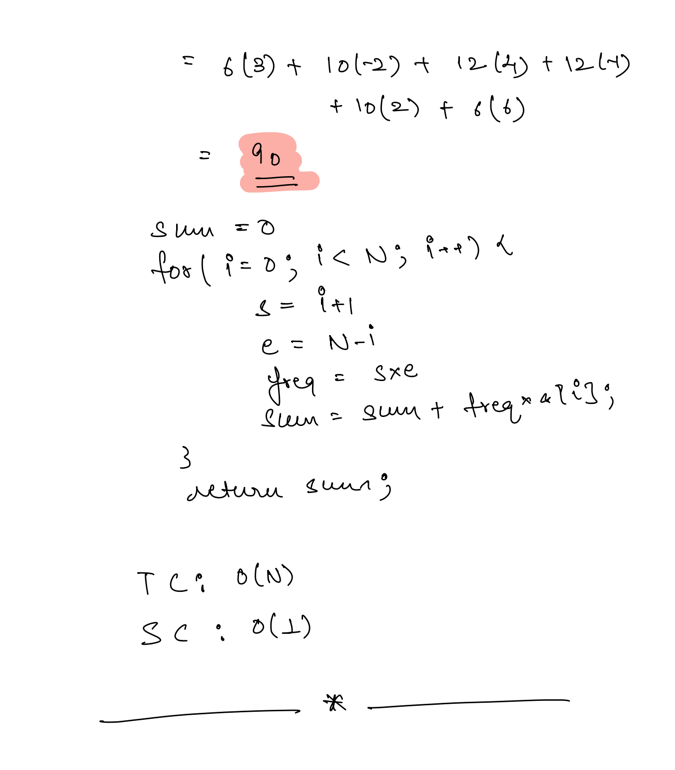 = 6(3) + 10(-2) + 12(4) + 12(-1)
+ 10(2) + 6(6)
= 90
sum = 0
for( i=0; i< N; i++) {
s = i+1
e = N-i
freq = s×e
sum = sum + freq * a[i];
}
return sum;
TC: O(N)
SC : O(1)
*